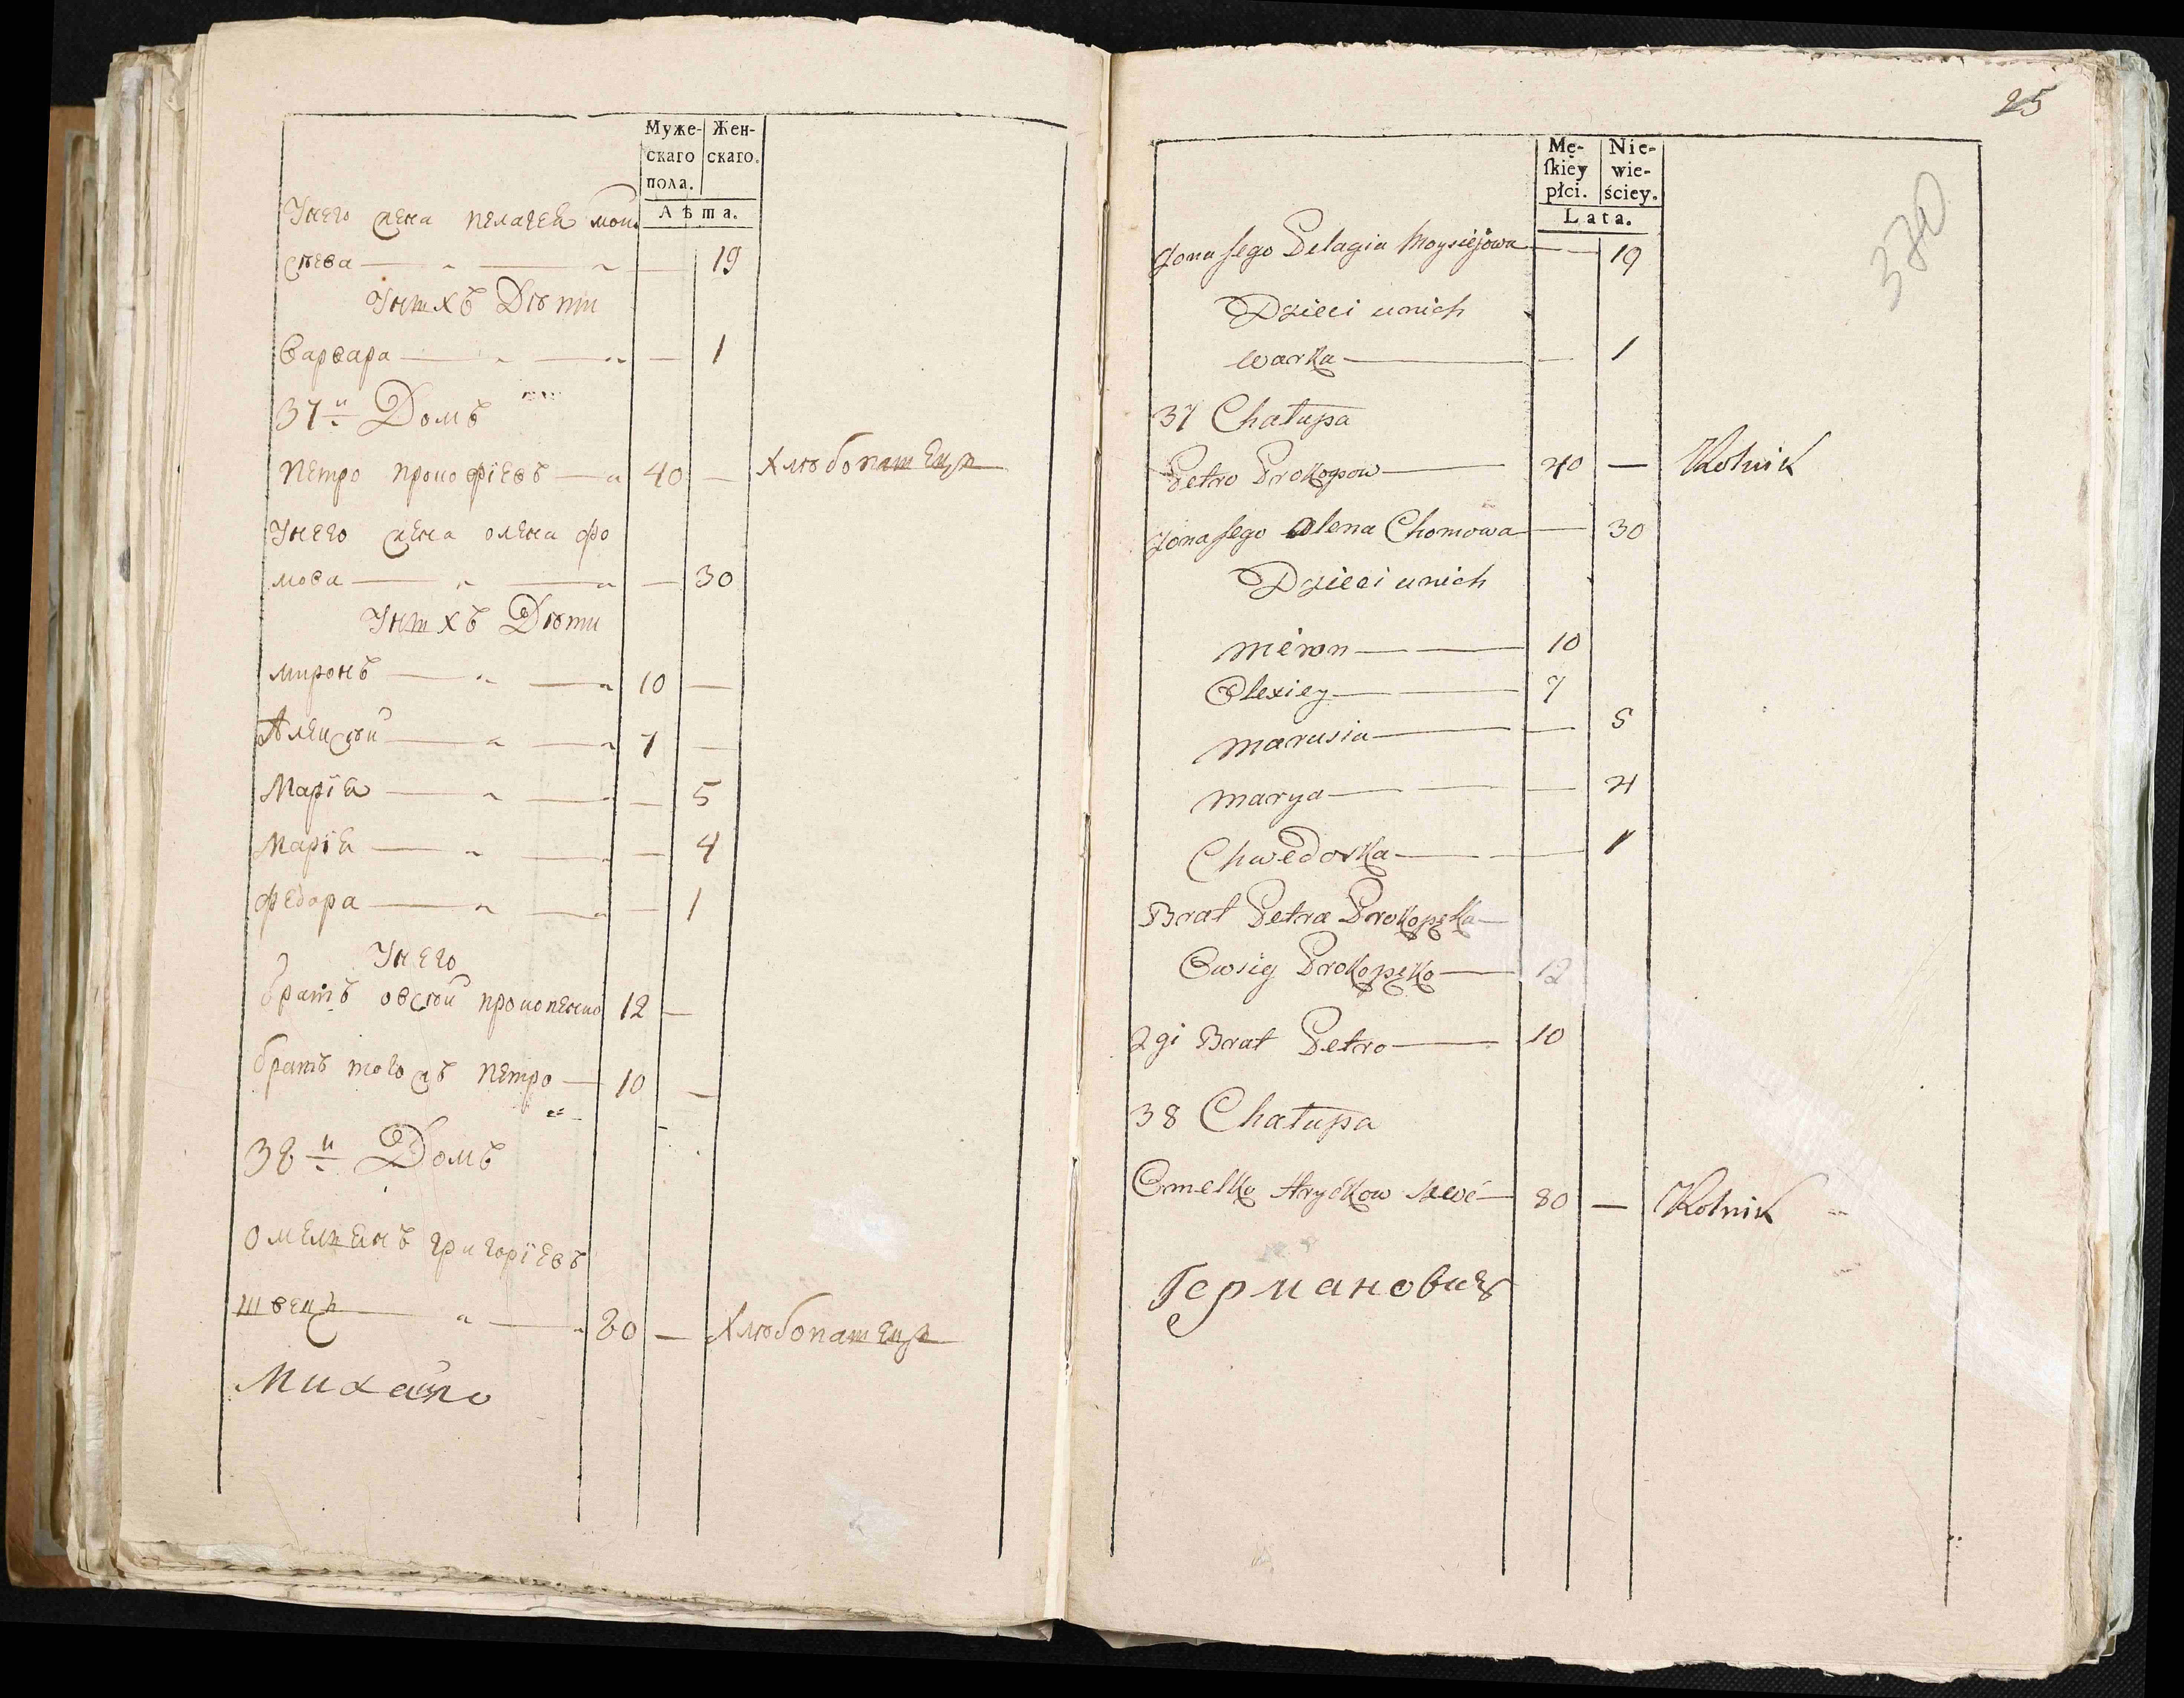 Муже- Жен-
скаго скаго.
пола.
Лѣта.
Унего жена пелагея мои
сѣева — 19
Унихъ Дѣти
варвара — 1
37й Домъ
петро прокофіевъ — 40 — Хлѣбопашецъ
Унего жена олена фо
мова — 30
Унихъ Дѣти
миронъ — 10 —
Алексѣй — 7 —
Марія — 5
Марія — 4
федора — 1
Унего
братъ овсѣй прокопенко 12 —
братъ того жъ петро — 10 —
38й Домъ
Омельянъ григоріевъ
швецъ — 80 — Хлѣбопашецъ
Михайло
25
370
Mę- Nie-
ſkiey wie-
płci. ściey.
Lata.
Zona Jego Pelagia Moysiejowa — 19
Dzieci unich
warka — 1
37 Chałupa
Petro Prokopow — 40 — Rolnik
Zona Jego olena Chomowa — 30
Dzieci unich
miron — 10
Olexiey — 7
marusia — 5
marya — 4
Chwedorka — 1
Brat Petra Prokopęka —
Owsiy Prokopęko — 12
2gi Brat Petro — 10
38 Chałupa
Omelko Hryckow szwec — 80 — Rolnik
Германовичъ